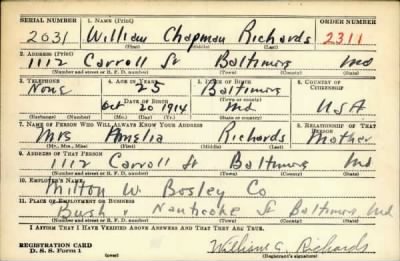 SERIAL NUMBER 1. NAME (Print) ORDER NUMBER
2031 William Chapman Richards 2311
(First) (Middle) (Last)
2. ADDRESS (Print)
1112 Carroll St Baltimore Md
(Number and street or R. F. D. number) (Town) (County) (State)
3. TELEPHONE 4. AGE IN YEARS 5. PLACE OF BIRTH 6. COUNTRY OF CITIZENSHIP
None 25 Baltimore
DATE OF BIRTH (Town or county)
Oct 20 1914 Md USA
(Exchange) (Number) (Mo.) (Day) (Yr.) (State or country)
7. NAME OF PERSON WHO WILL ALWAYS KNOW YOUR ADDRESS 8. RELATIONSHIP OF THAT PERSON
Mrs Amelia Richards Mother
(Mr., Mrs., Miss) (First) (Middle) (Last)
9. ADDRESS OF THAT PERSON
1112 Carroll St Baltimore Md
(Number and street or R. F. D. number) (Town) (County) (State)
10. EMPLOYER'S NAME
Milton W. Bosley Co
11. PLACE OF EMPLOYMENT OR BUSINESS
Bush Nanticoke St Baltimore Md
(Number and street or R. F. D. number) (Town) (County) (State)
I AFFIRM THAT I HAVE VERIFIED ABOVE ANSWERS AND THAT THEY ARE TRUE.
REGISTRATION CARD William C. Richards
D. S. S. Form 1 (over) (Registrant's signature)